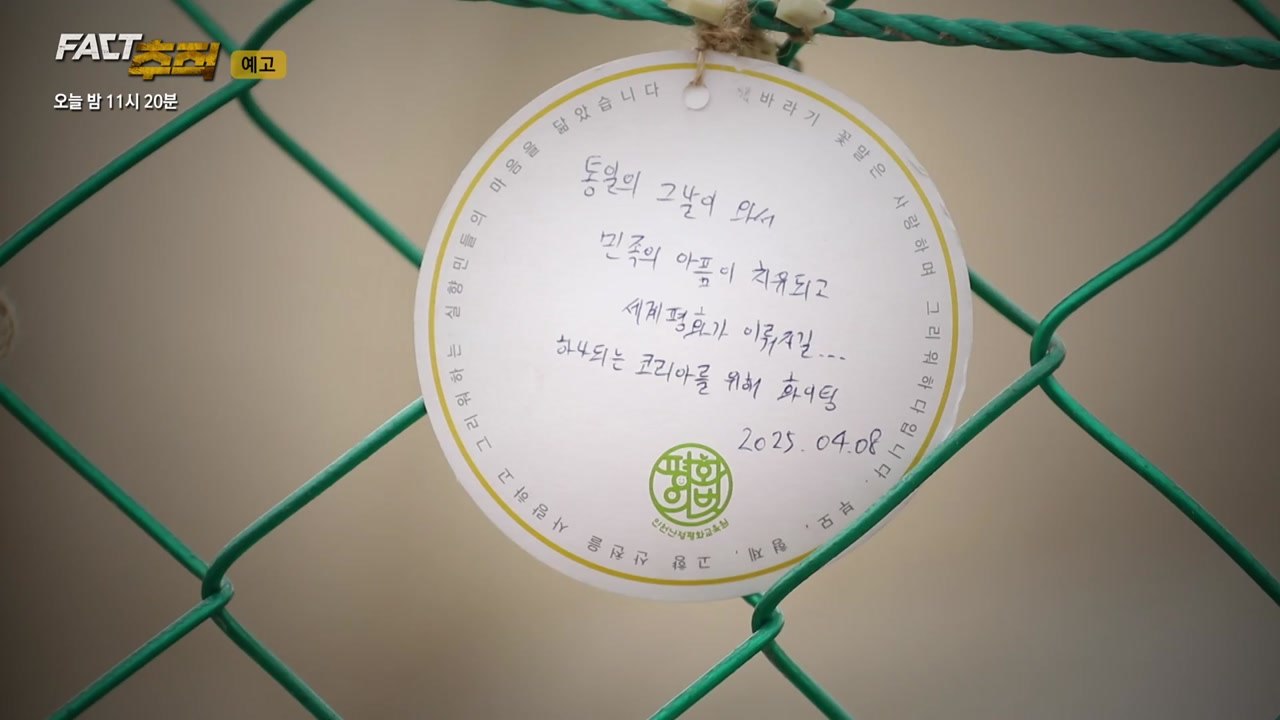 FACT추적 예고
오늘 밤 11시 20분
바라기 꽃말은 사랑하며 그리워하다입니다. 부모, 형제, 고향 산천을 사랑하고 그리워하는 실향민들의 마음을 닮았습니다
통일의 그날이 와서
민족의 아픔이 치유되고
세계평화가 이뤄지길...
하나되는 코리아를 위해 화이팅
2025. 04.08
평화
이번
인천난정평화교육원